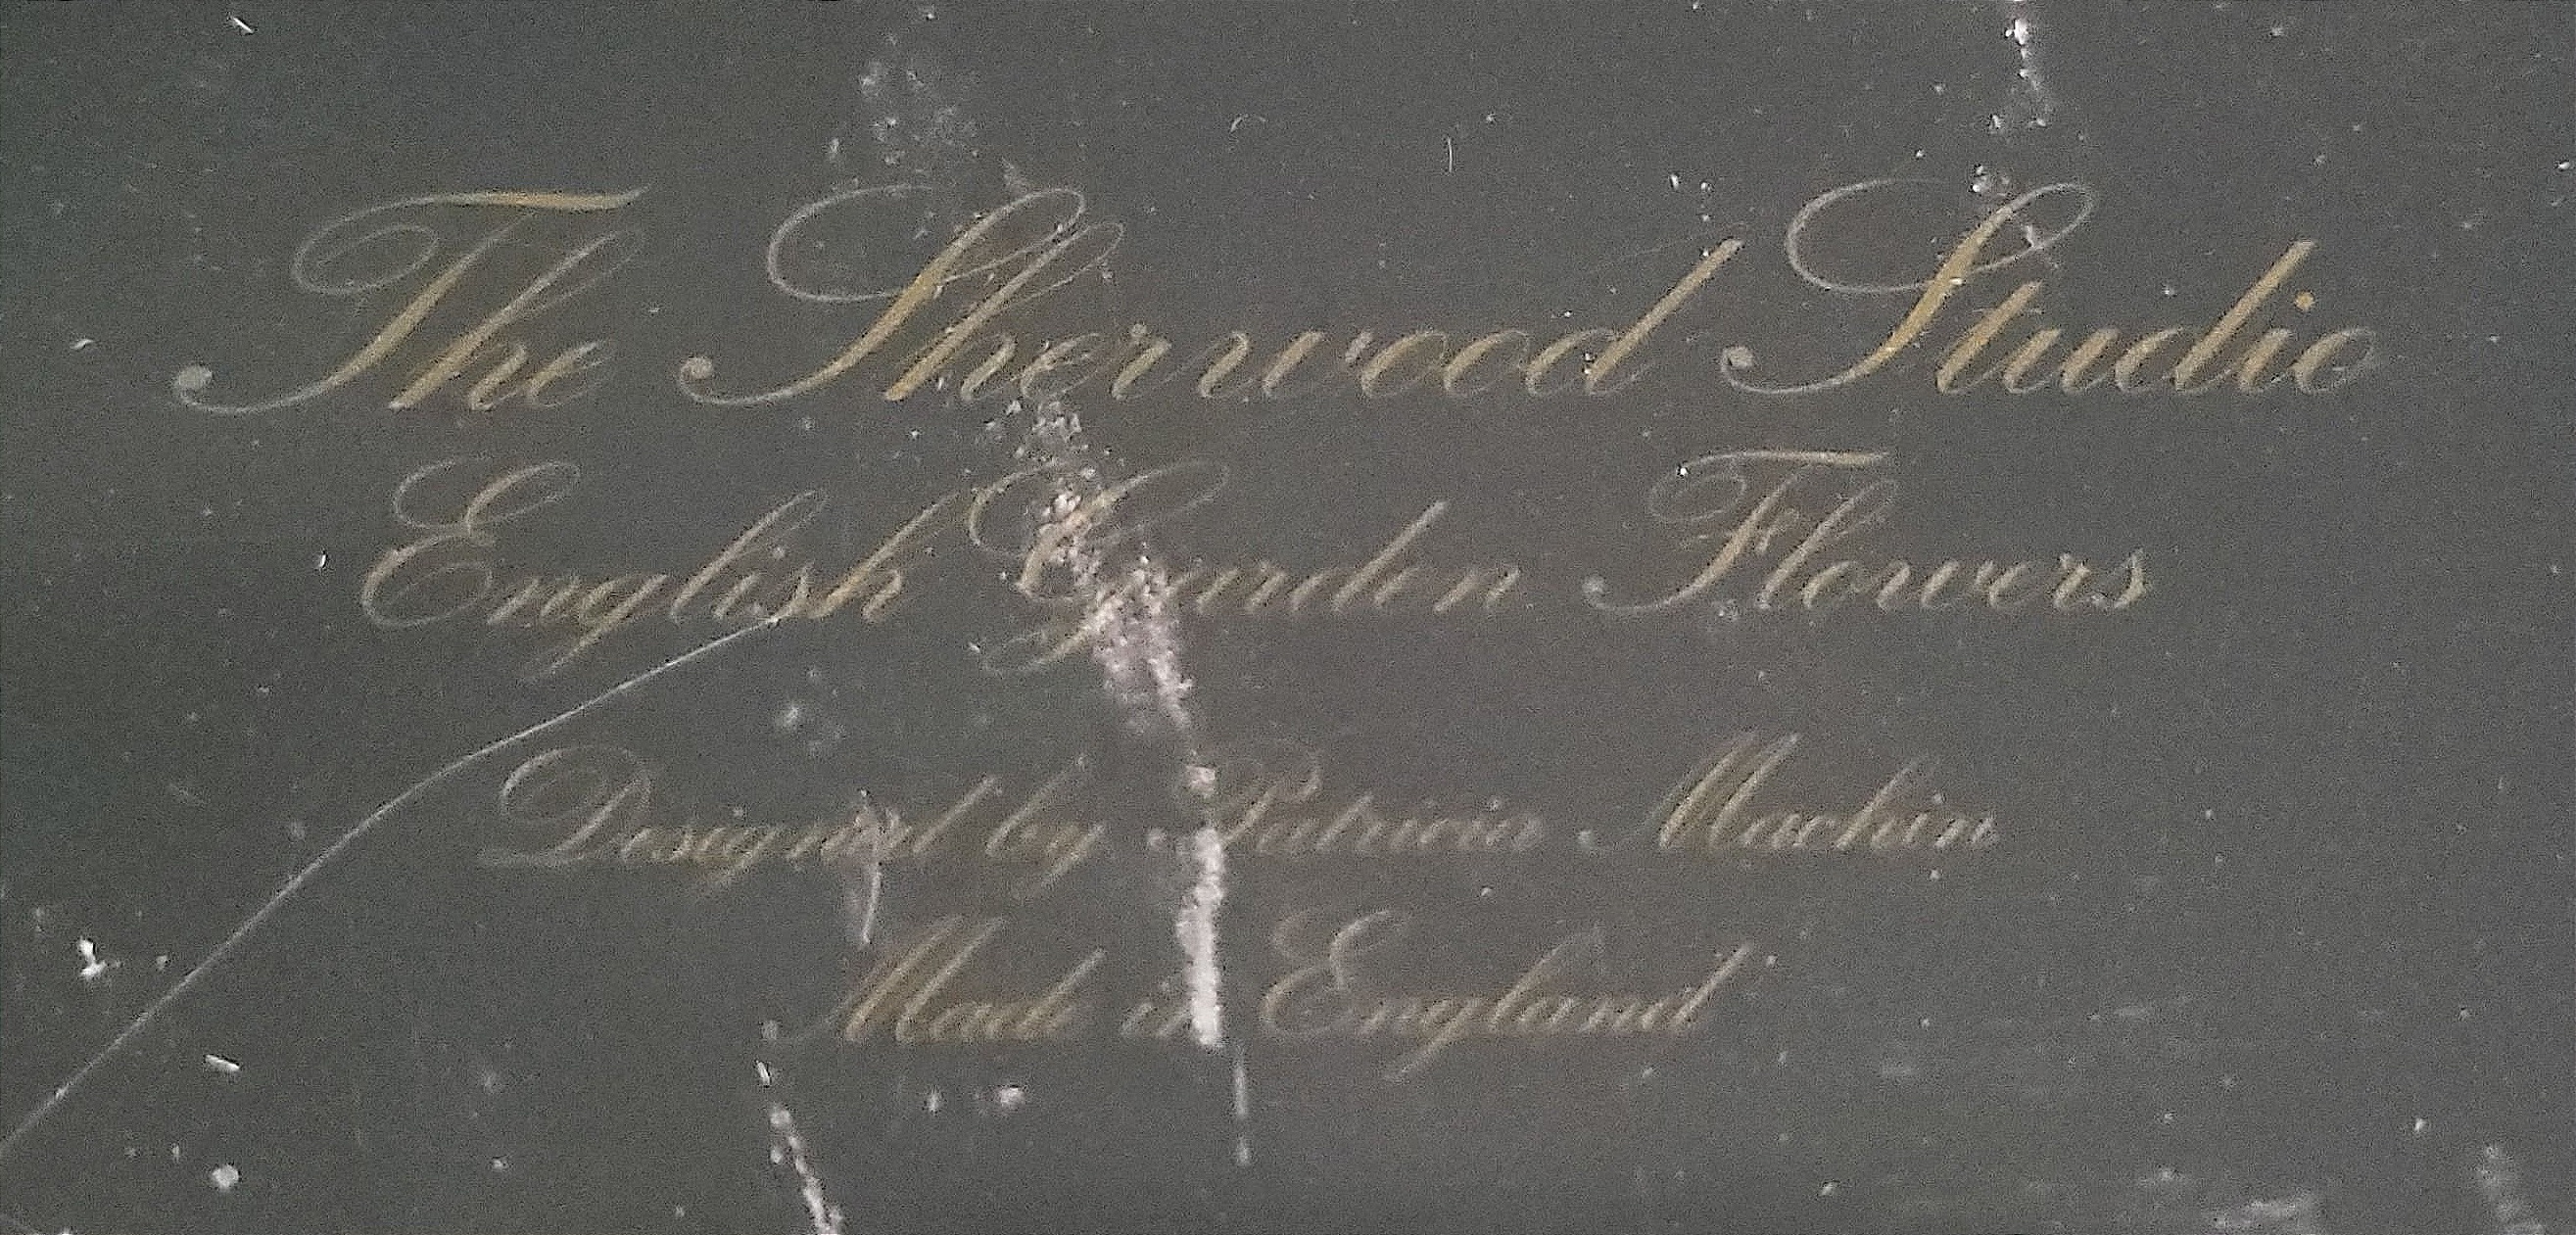 The Sherwood Studio
English Garden Flowers
Designed by Patricia Machin
Made in England